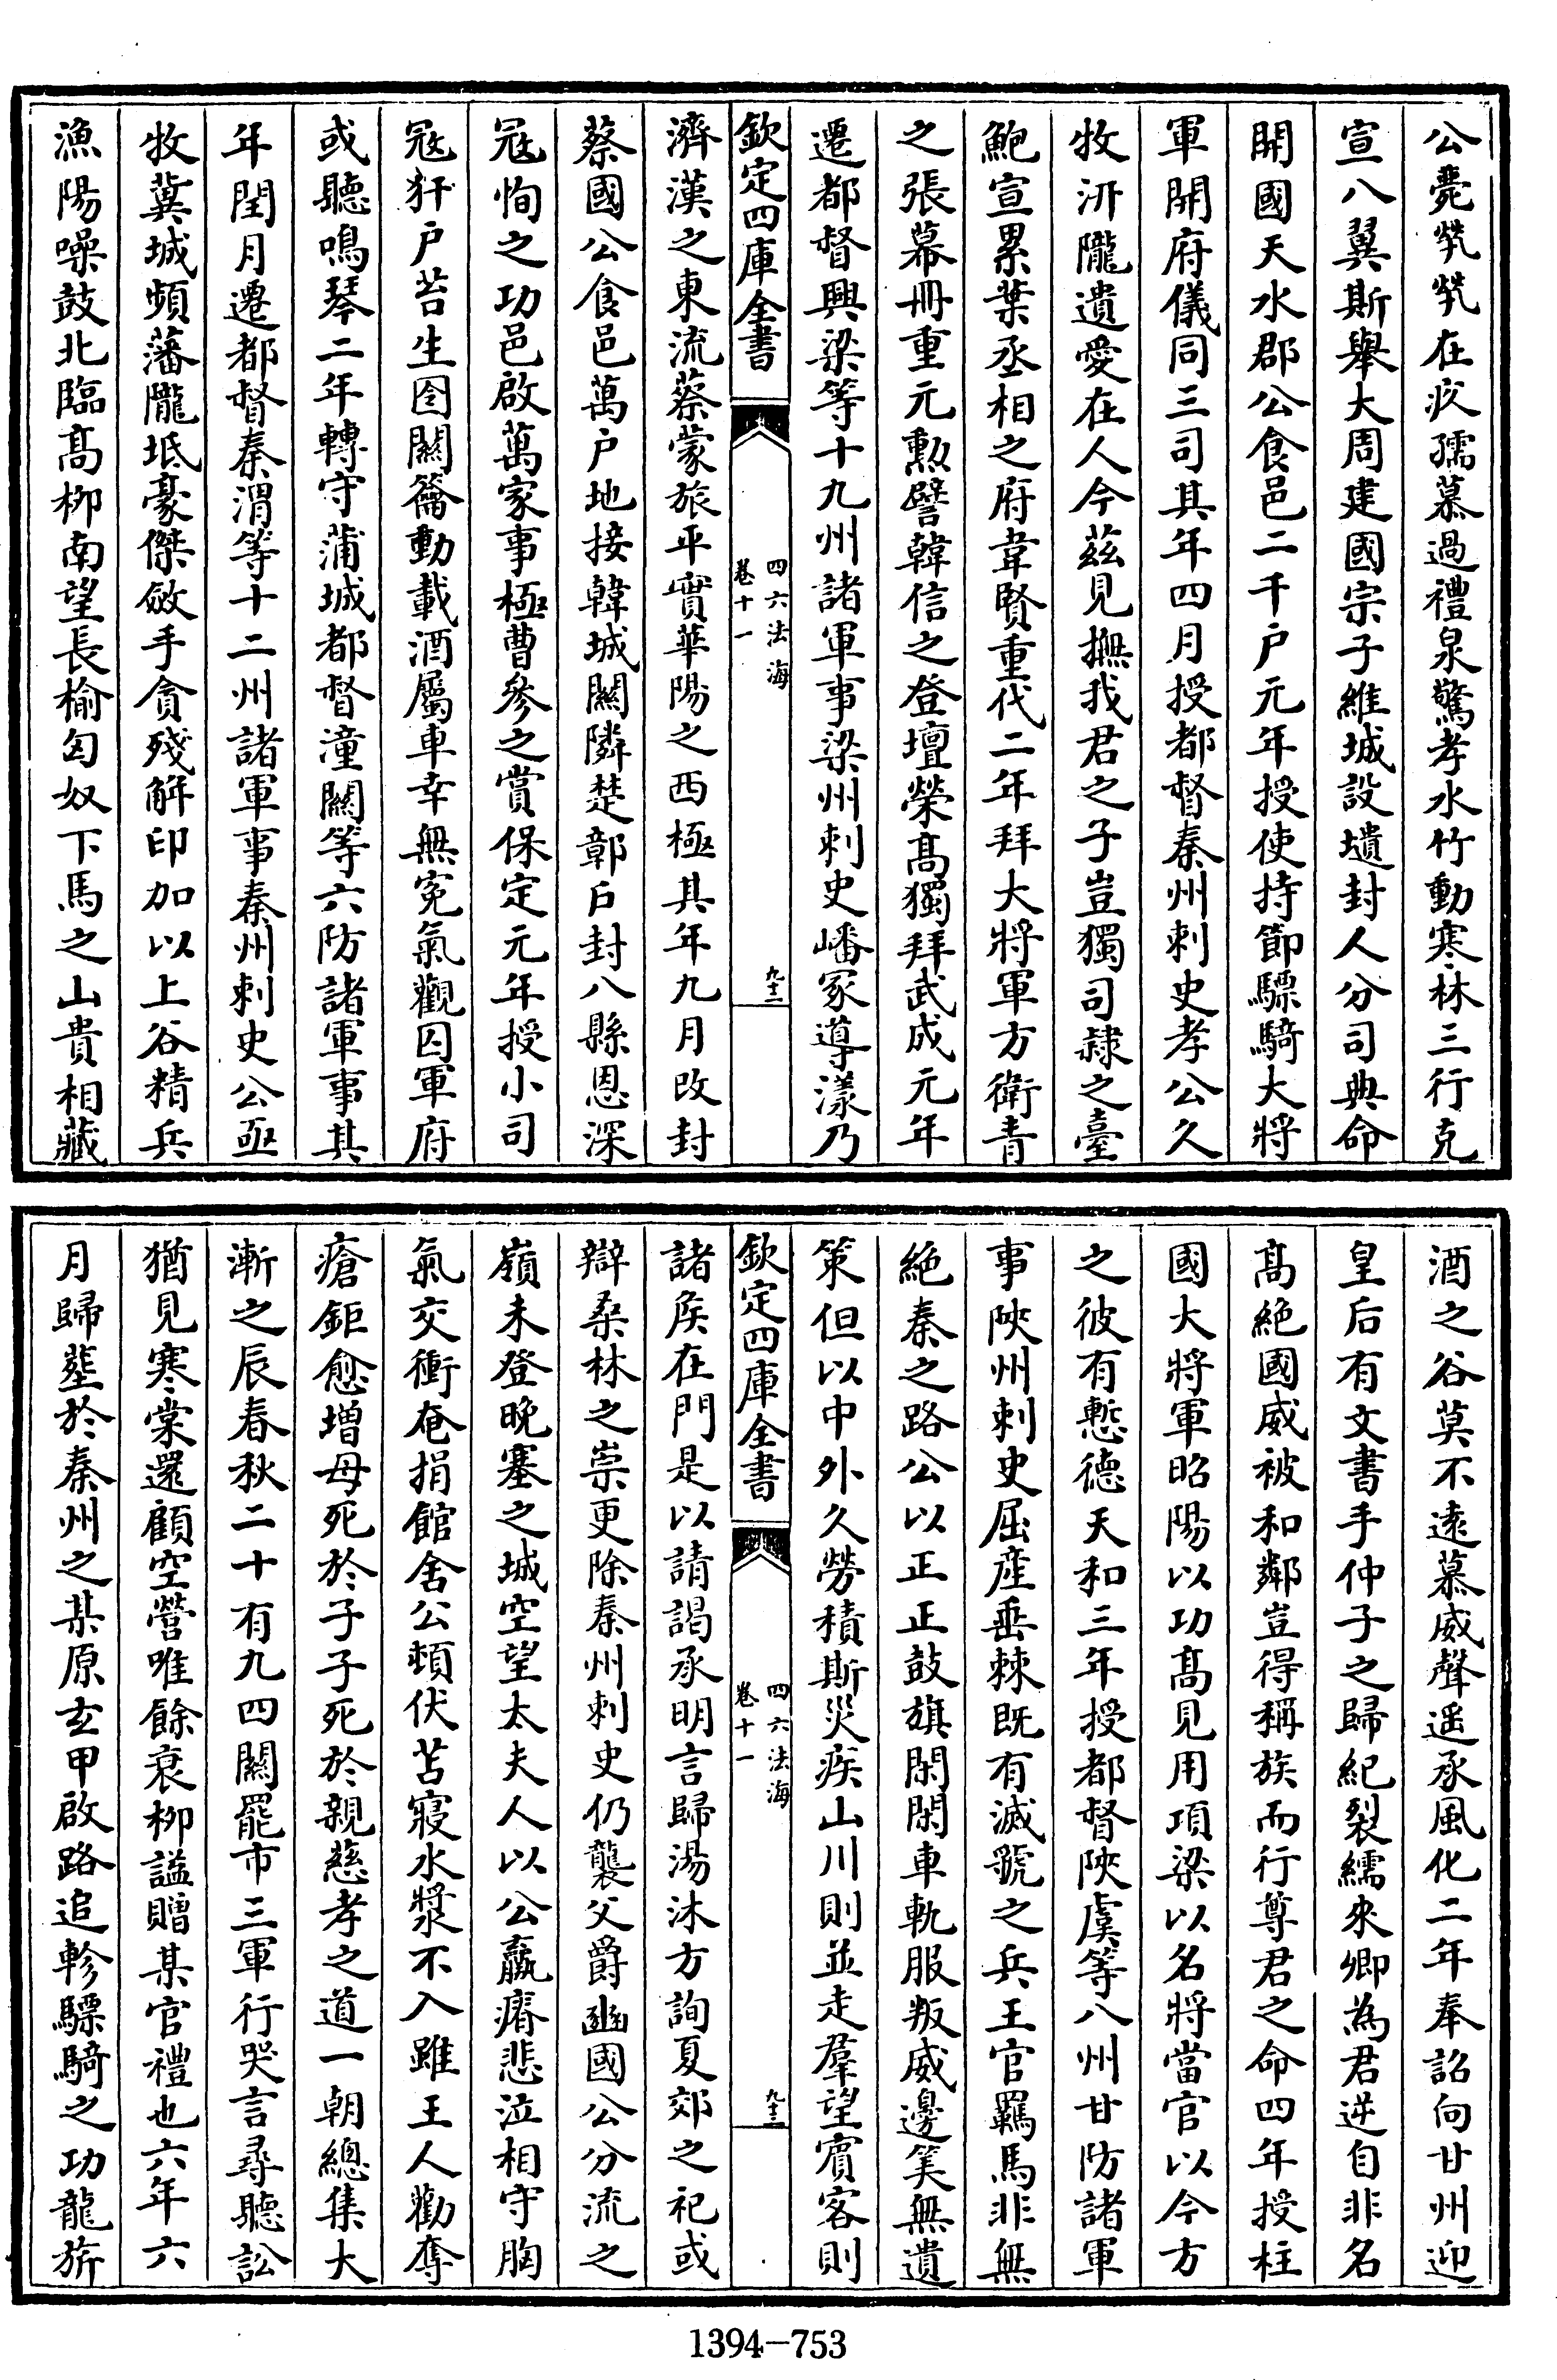 公薨煢煢在疚孺慕過禮泉驚孝水竹動寒林三行克
宣八翼斯舉大周建國宗子維城設壝封人分司典命
開國天水郡公食邑二千户元年授使持節驃騎大將
軍開府儀同三司其年四月授都督秦州刺史孝公久
牧汧隴遺愛在人今茲見撫我君之子豈獨司隷之臺
鮑宣累葉丞相之府韋賢重代二年拜大將軍方衛青
之張幕冊重元勲譬韓信之登壇榮髙獨拜武成元年
遷都督興梁等十九州諸軍事梁州刺史嶓冢導漾乃
欽定四庫全書
四六法海
卷十一
九十三
濟漢之東流蔡蒙旅平實華陽之西極其年九月改封
蔡國公食邑萬户地接韓城闗隣楚鄣户封八縣恩深
冦恂之功邑啟萬家事極曹參之賞保定元年授小司
冦犴户苔生圄闗籥動載酒屬車幸無寃氣觀囚軍府
或聽鳴琴二年轉守蒲城都督潼闗等六防諸軍事其
年閏月遷都督秦渭等十二州諸軍事秦州刺史公亟
牧冀城頻藩隴坻豪傑斂手貪殘解印加以上谷精兵
漁陽噪鼓北臨髙柳南望長榆匈奴下馬之山貴相藏
酒之谷莫不逺慕威聲遥承風化二年奉詔向甘州迎
皇后有文書手仲子之歸紀裂繻來卿為君逆自非名
髙絶國威被和鄰豈得稱族而行尊君之命四年授柱
國大將軍昭陽以功髙見用項梁以名將當官以今方
之彼有慙德天和三年授都督陜虞等八州甘防諸軍
事陜州刺史屈産垂棘既有滅虢之兵王官羈馬非無
絶秦之路公以正正鼓旗閑閑車軌服叛威邊筭無遺
策但以中外久勞積斯災疾山川則並走羣望賓客則
欽定四庫全書
四六法海
卷十一
九十三
諸矦在門是以請謁承明言歸湯沐方詢夏郊之祀或
辯桑林之崇更除秦州刺史仍襲父爵豳國公分流之
嶺未登晚塞之城空望太夫人以公羸瘠悲泣相守胸
氣交衝奄捐館舍公頼伏苫寢水漿不入雖王人勸奪
瘡鉅愈增母死於子子死於親慈孝之道一朝總集大
漸之辰春秋二十有九四闗罷市三軍行哭言尋聽訟
猶見寒棠還顧空營唯餘衰柳謚贈某官禮也六年六
月歸塟於秦州之某原玄甲啟路追軫驃騎之功龍旂
1394-753